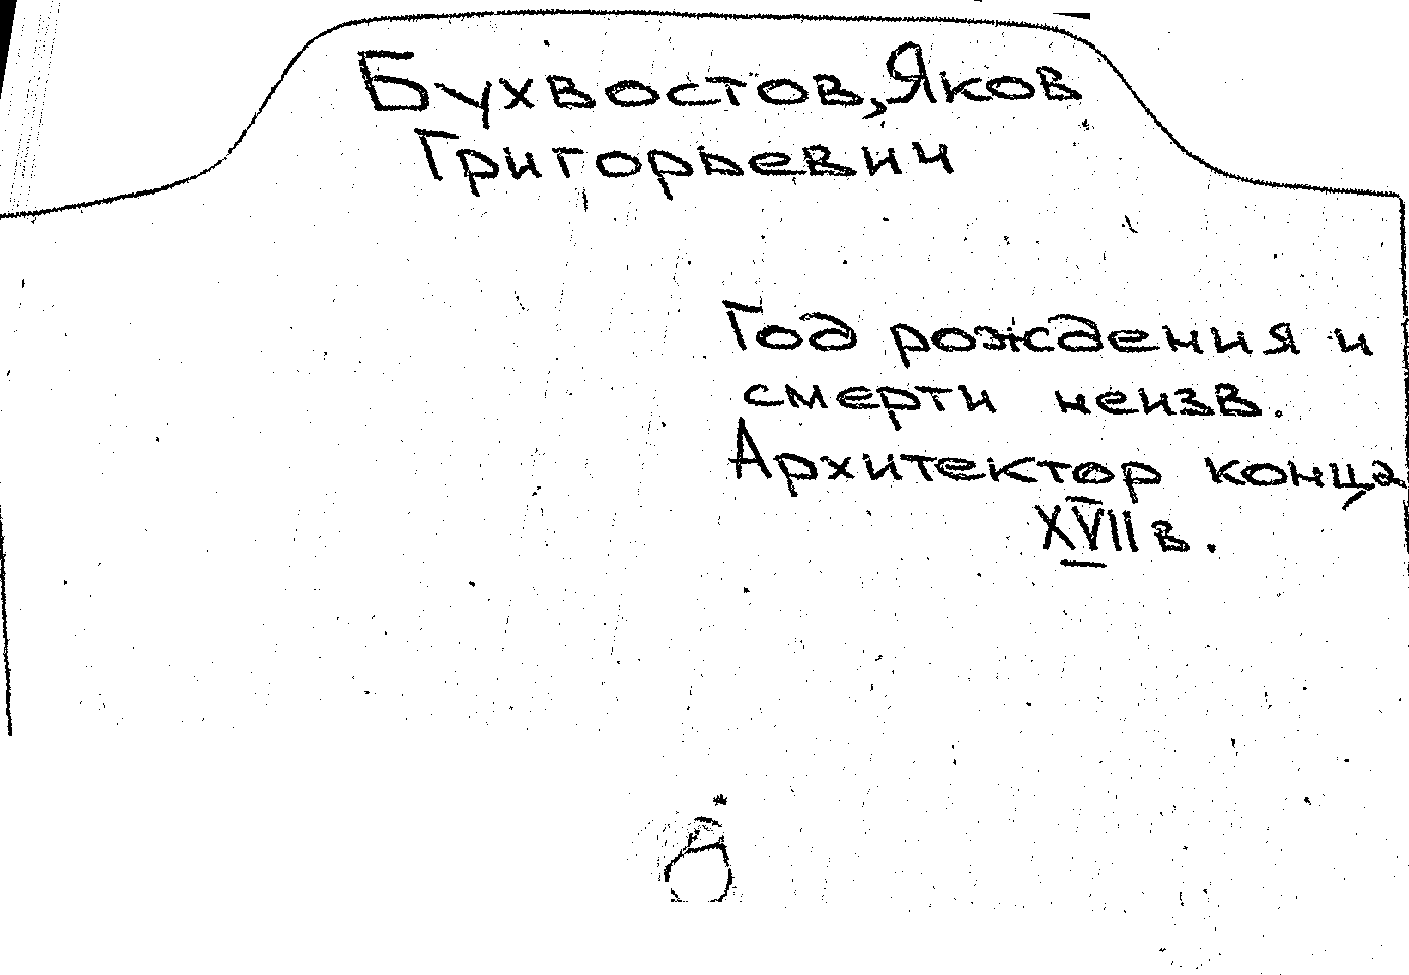 Бухвостов, Яков
Григорьевич
Год рождения и
смерти неизв.
Архитектор конца
XVII в.